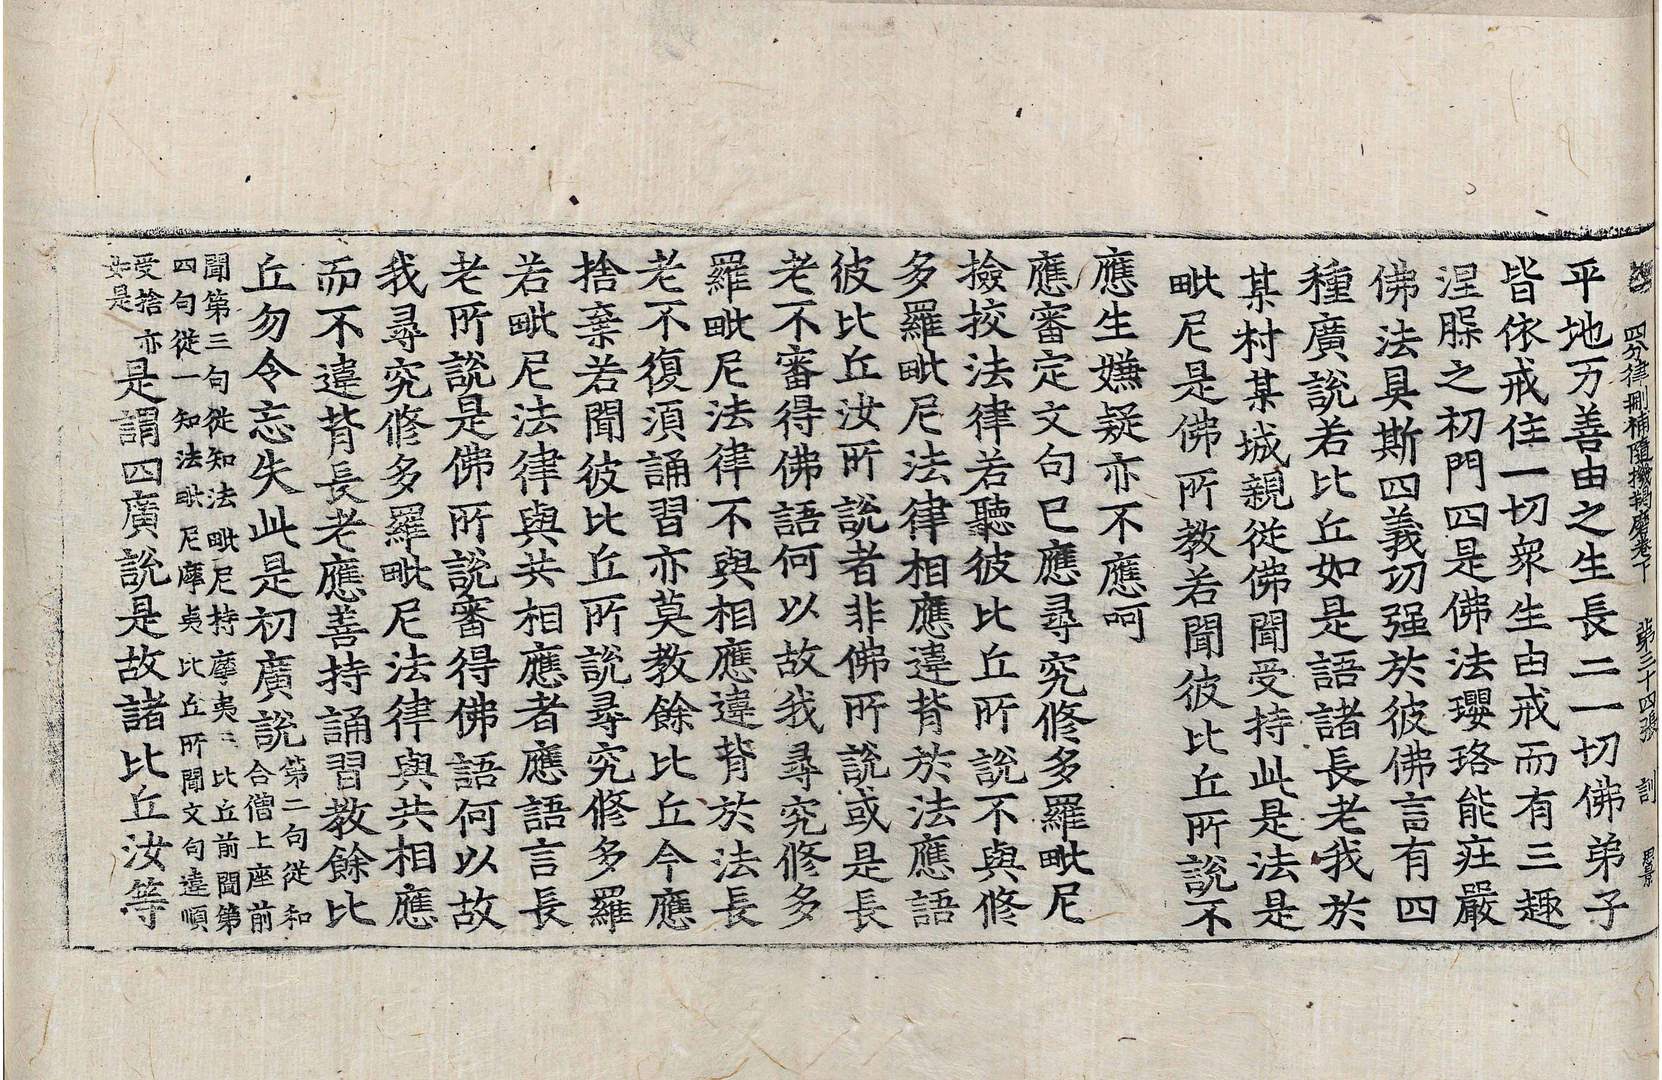 四分律刪補隨機羯磨卷下 第三十四張 訓
平地万善由之生長二一切佛弟子
皆依戒住一切衆生由戒而有三趣
涅槃之初門四是佛法瓔珞能莊嚴
佛法具斯四義功强於彼佛言有四
種廣說若比丘如是語諸長老我於
某村某城親從佛聞受持此是法是
毗尼是佛所教若聞彼比丘所說不
應生嫌疑亦不應呵
應審定文句已應尋究修多羅毗尼
撿挍法律若聽彼比丘所說不與修
多羅毗尼法律相應違背於法應語
彼比丘汝所說者非佛所說或是長
老不審得佛語何以故我尋究修多
羅毗尼法律不與相應違背於法長
老不復湏誦習亦莫教餘比丘今應
捨棄若聞彼比丘所說尋究修多羅
若毗尼法律與共相應者應語言長
老所說是佛所說審得佛語何以故
我尋究修多羅毗尼法律與共相應
而不違背長老應善持誦習教餘比
丘勿令忘失此是初廣說第二句從和
合僧上座前
聞第三句從知法毗尼持摩夷二比丘前聞第
四句從一知法毗尼摩夷比丘所聞文句違順
受捨亦
如是
是謂四廣說是故諸比丘汝等